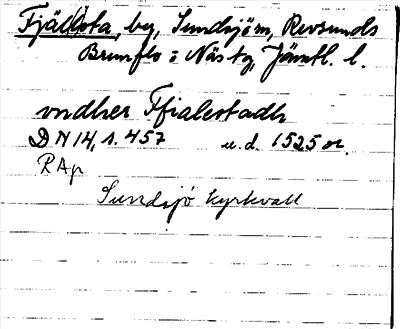 Fjällsta, by, Sundsjöm, Revsunds
Brunflo o Näs tg, Jämtl. l.
vndher Ffialestadh
DN 14, s. 457 u.d. 1525 or.
RAp
Sundsjö kyrkvall